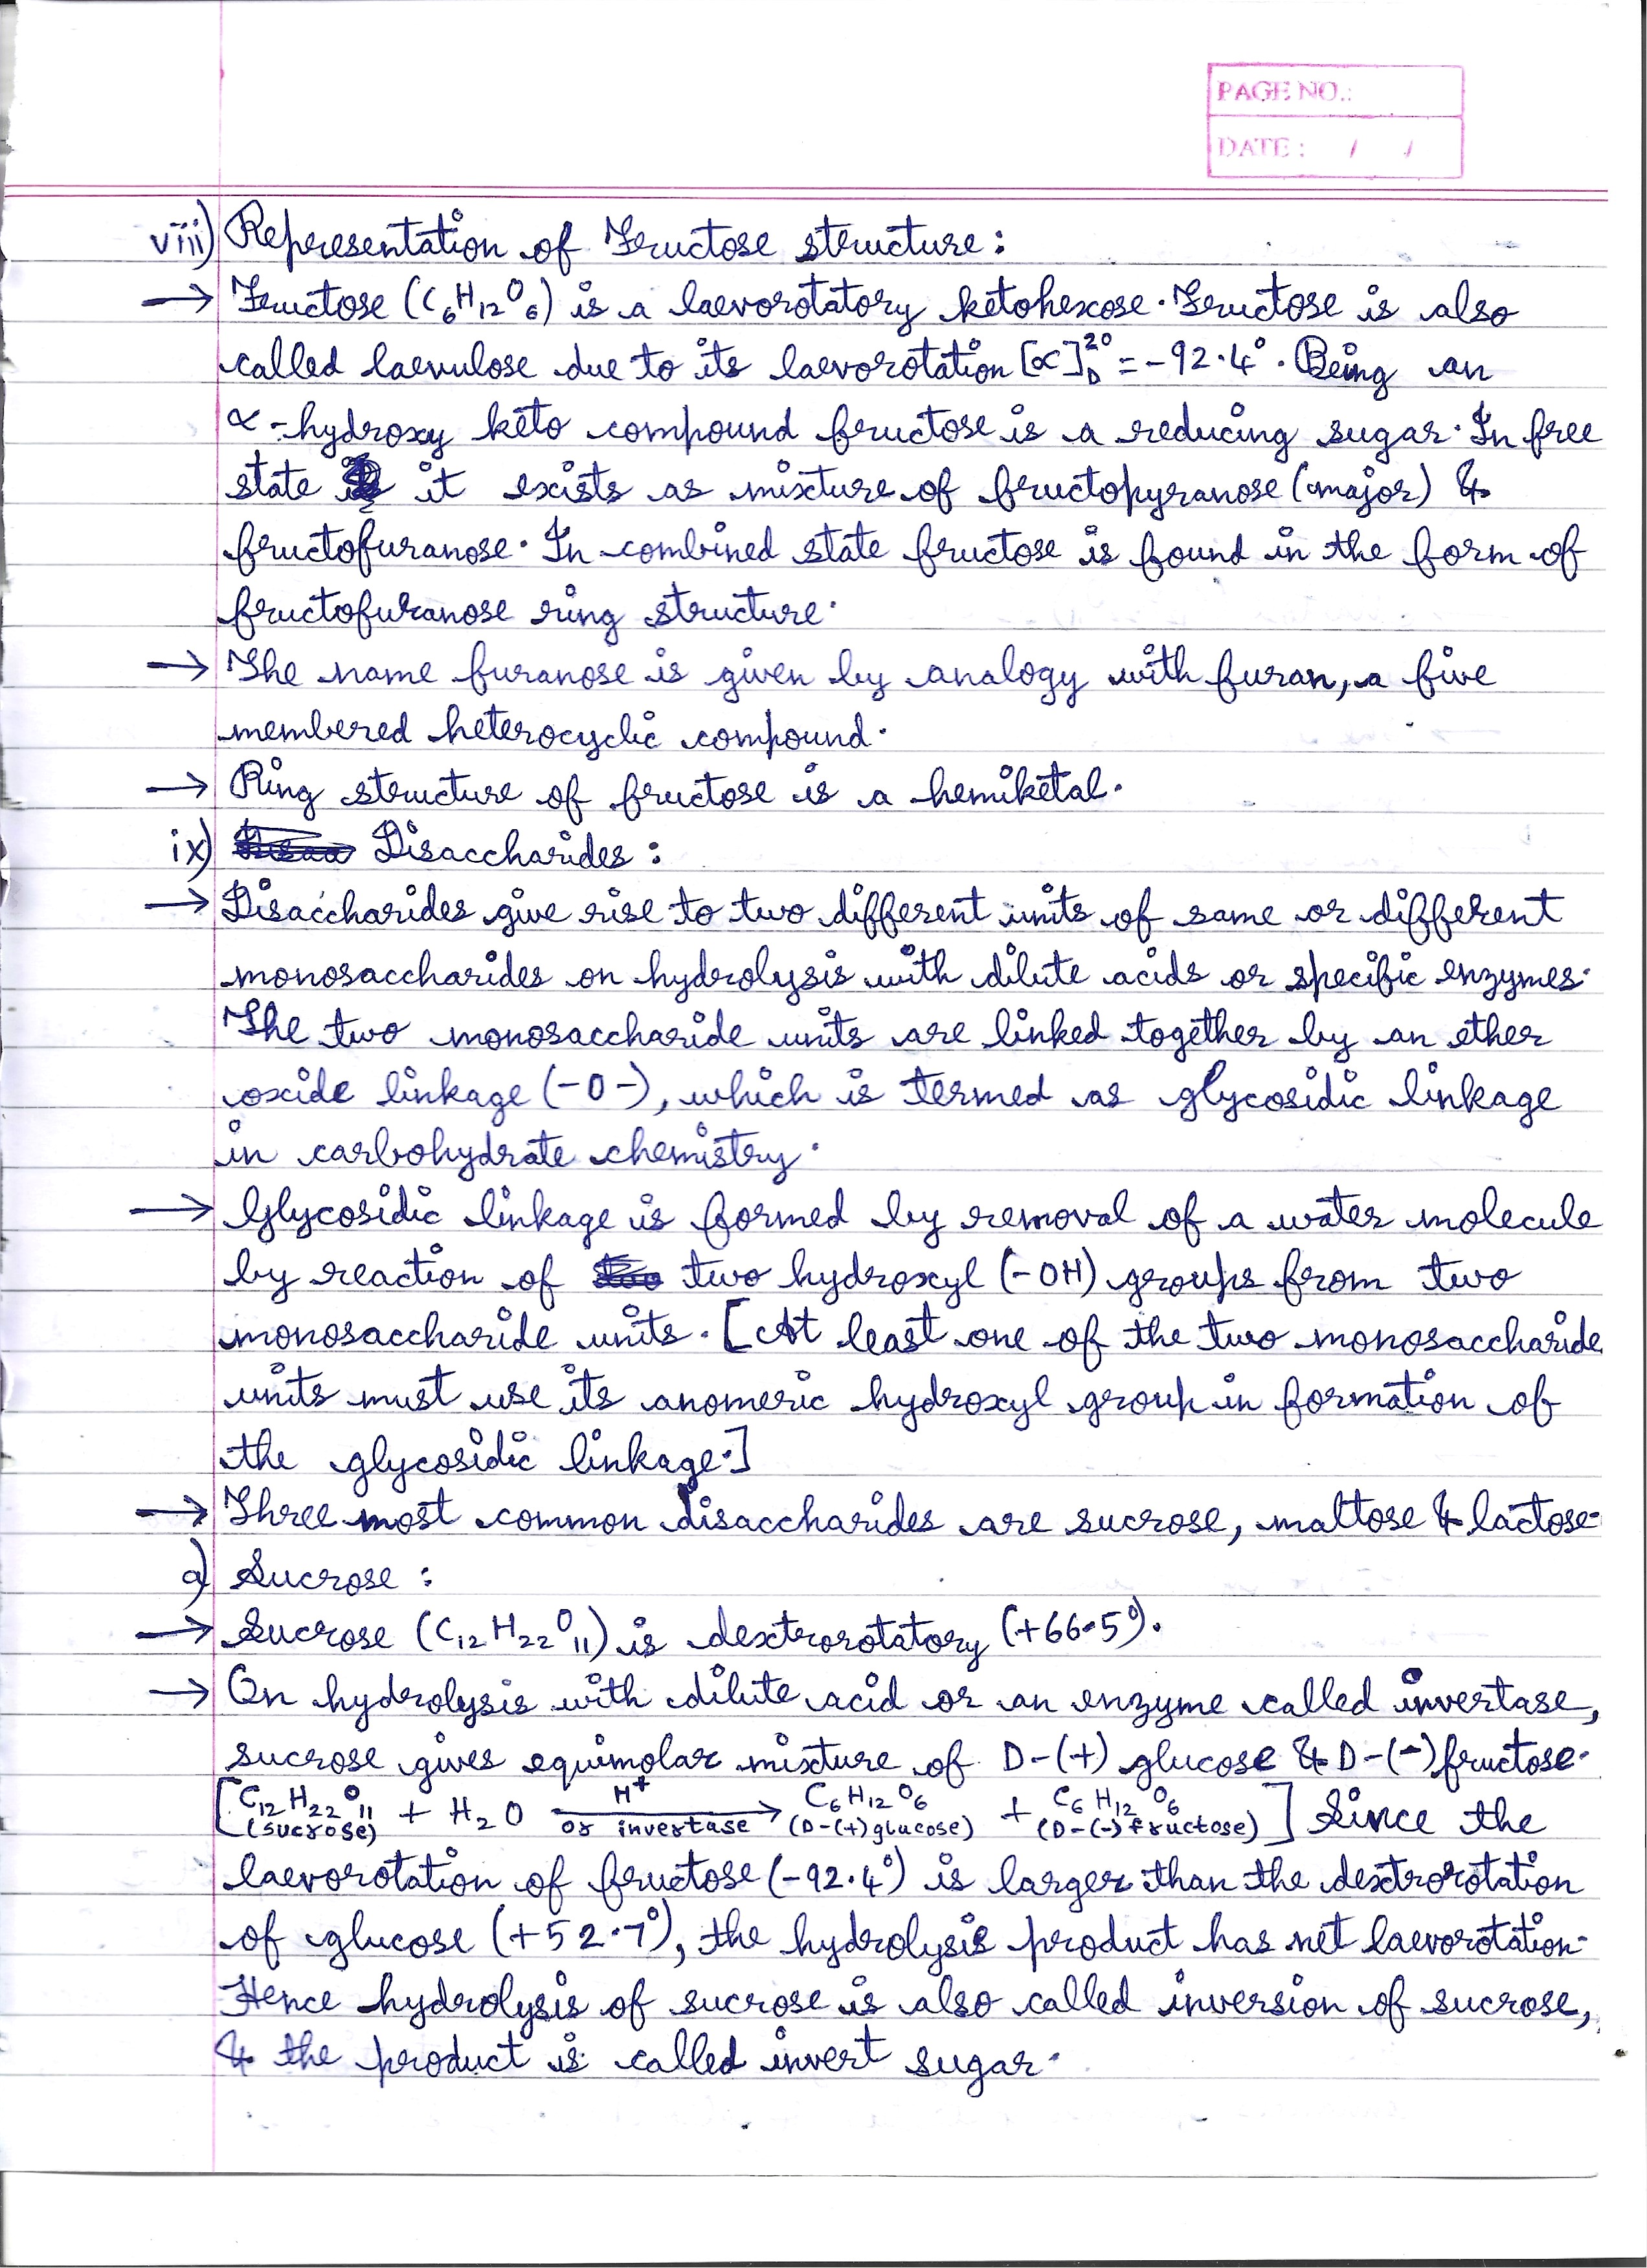 PAGE NO.:
DATE : / /
viii) Representation of Fructose structure :
→ Fructose (C₆H₁₂O₆) is a laevorotatory ketohexose. Fructose is also
called laevulose due to its laevorotation [α]D20° = -92.4°. Being an
α-hydroxy keto compound fructose is a reducing sugar. In free
state it exists as mixture of fructopyranose (major) &
fructofuranose. In combined state fructose is found in the form of
fructofuranose ring structure.
→ The name furanose is given by analogy with furan, a five
membered heterocyclic compound.
→ Ring structure of fructose is a hemiketal.
ix) Disaccharides :
→ Disaccharides give rise to two different units of same or different
monosaccharides on hydrolysis with dilute acids or specific enzymes.
The two monosaccharide units are linked together by an ether
oxide linkage (-O-), which is termed as glycosidic linkage
in carbohydrate chemistry.
→ Glycosidic linkage is formed by removal of a water molecule
by reaction of two hydroxyl (-OH) groups from two
monosaccharide units. [At least one of the two monosaccharide
units must use its anomeric hydroxyl group in formation of
the glycosidic linkage.]
→ Three most common disaccharides are sucrose, maltose & lactose.
a) Sucrose :
→ Sucrose (C₁₂H₂₂O₁₁) is dextrorotatory (+66.5°).
→ On hydrolysis with dilute acid or an enzyme called invertase,
sucrose gives equimolar mixture of D-(+) glucose & D-(-) fructose.
[C₁₂H₂₂O₁₁ (sucrose) + H₂O H⁺ or invertase → C₆H₁₂O₆ (D-(+) glucose) + C₆H₁₂O₆ (D-(-) fructose)] Since the
laevorotation of fructose (-92.4°) is larger than the dextrorotation
of glucose (+52.7°), the hydrolysis product has net laevorotation.
Hence hydrolysis of sucrose is also called inversion of sucrose,
& the product is called invert sugar.